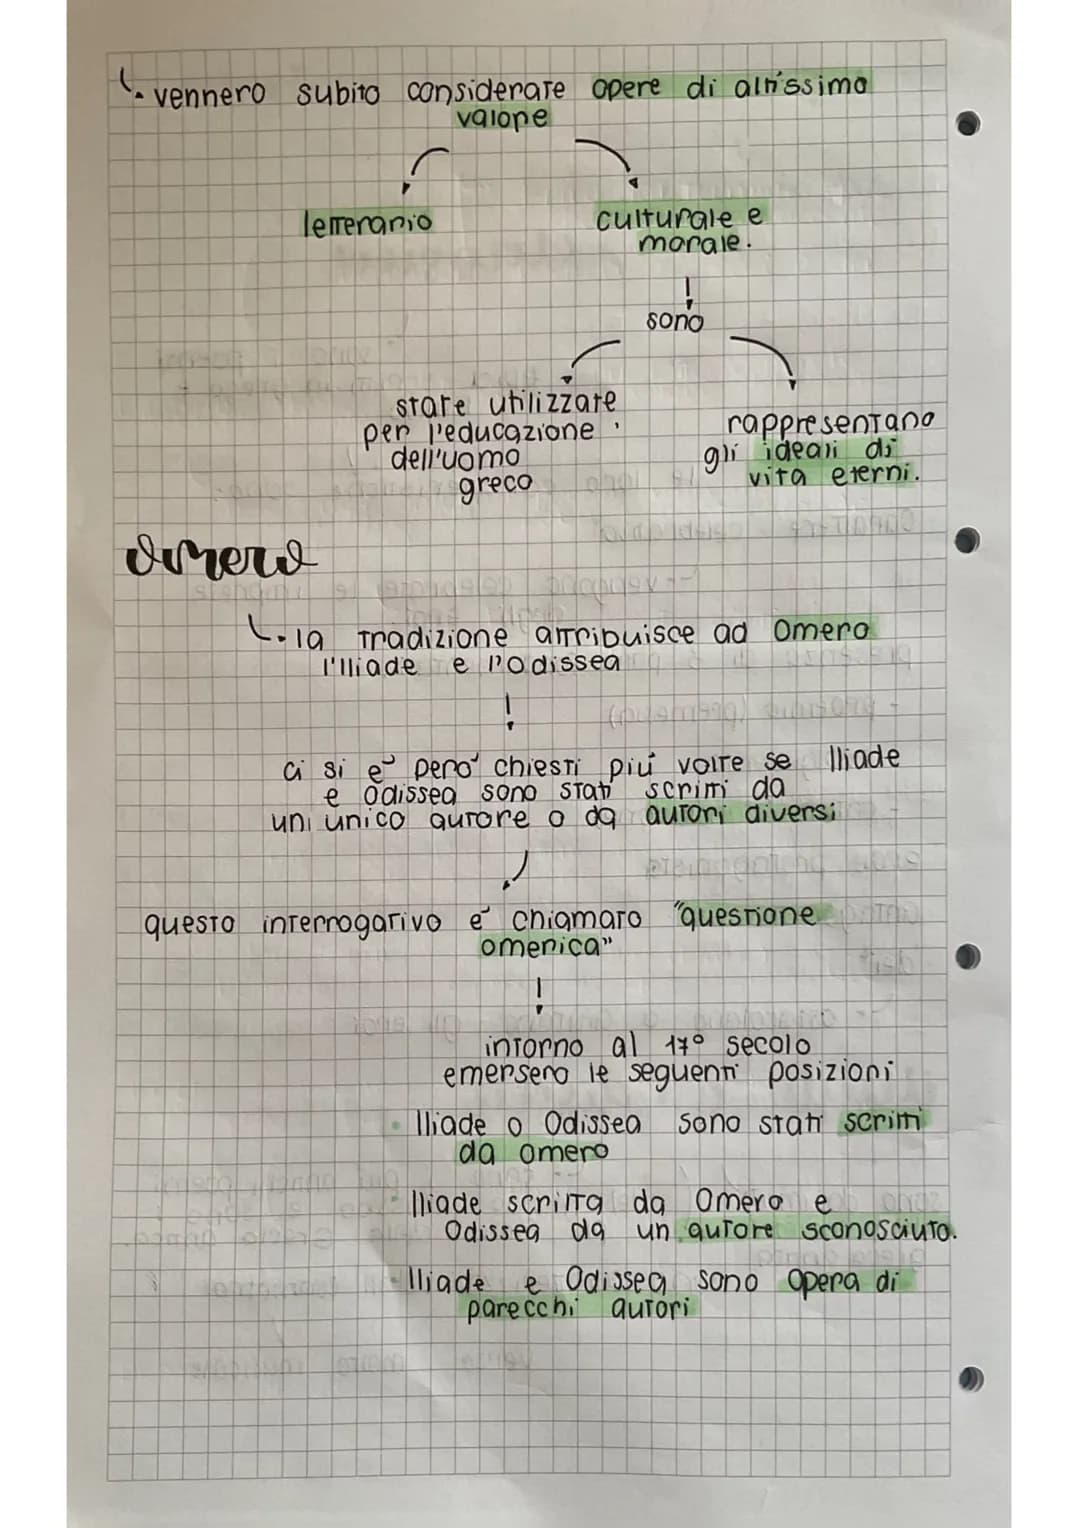 vennero subito considerate opere di altissimo
valore
letterario
culturale e
morale.
sono
state utilizzate
per l'educazione
dell'uomo
greco
rappresentano
gli ideali di
vita eterni.
Omero
la tradizione attribuisce ad Omero
l'Iliade e l'Odissea
ci si è però chiesti più volte se Iliade
e Odissea sono stati scritti da
un unico autore o da autori diversi
questo interrogativo è chiamato "questione
omerica"
intorno al 17° secolo
emersero le seguenti posizioni
• Iliade o Odissea sono stati scritti
da omero
• Iliade scritta da Omero e
Odissea da un autore sconosciuto.
• Iliade e Odissea sono opera di
parecchi autori